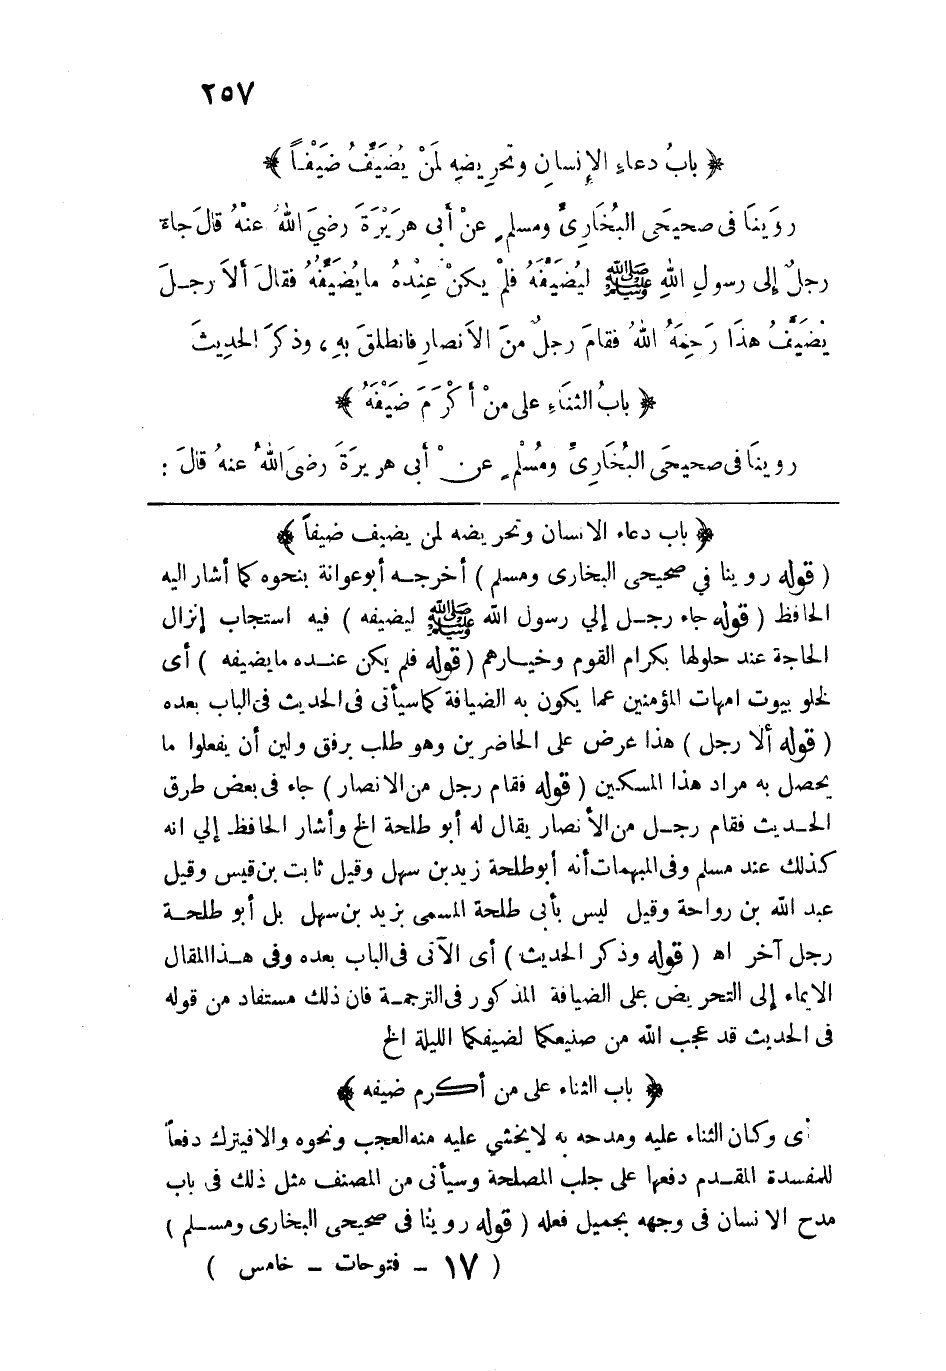 ٢٥٧
﴿ بابُ دعاءِ الإِنسانِ وتحرِيضِهِ لمَنْ يُضَيِّفُ ضَيْفاً ﴾
روَينَا فى صحيحَى البُخَارِىِّ ومسلمٍ عنْ أَبى هرَيْرَةَ رضىَ اللهُ عنهُ قالَ جاءَ
رجلٌ إلى رسولِ اللهِ ﷺ ليُضَيِّفَهُ فلمْ يكنْ عِنْدهُ مايُضَيِّفُهُ فقالَ أَلاَ رجـلَ
يُضَيِّفُ هذَا رَحِمَهُ اللهُ فقامَ رجلٌ منَ الأَنصارِ فانطلقَ بهِ ، وذكرَ الحديثَ
﴿ بابُ الثنَاءِ على منْ أَكْرَمَ ضَيْفَهُ ﴾
روينَا فى صحيحَى البُخَارِىِّ ومُسْلمٍ عنْ أَبى هريرَةَ رضىَ اللهُ عنهُ قالَ :
﴿ باب دعاء الانسان وتحريضه لمن يضيف ضيفاً ﴾
( قوله روينا في صحيحى البخارى ومسلم ) أخرجـه أبوعوانة بنحوه كما أشار اليه
الحافظ ( قوله جاء رجـل إلي رسول الله ﷺ ليضيفه ) فيه استجاب إنزال
الحاجة عند حلولها بكرام القوم وخيـارهم ( قوله فلم يكن عنـده مايضيفه ) أى
لخلو بيوت امهات المؤمنين عما يكون به الضيافة كماسيأتى فى الحديث فى الباب بعده
( قوله ألا رجل ) هذا عرض على الحاضرين وهو طلب برفق ولين أن يفعلوا ما
يحصل به مراد هذا المسكين ( قوله فقام رجل من الانصار ) جاء فى بعض طرق
الحـديث فقام رجـل من الأنصار يقال له أبو طلحة الخ وأشار الحافظ إلي انه
كذلك عند مسلم وفى المبهمات أنه أبوطلحة زيدبن سهل وقيل ثابت بن قيس وقيل
عبد الله بن رواحة وقيل ليس بأبى طلحة المسمى بزيد بن سهل بل أبو طلحـة
رجل آخر اه ( قوله وذكر الحديث ) أى الآتى فى الباب بعده وفى هـذا المقال
الايماء إلى التحريض على الضيافة المذكور فى الترجمـة فان ذلك مستفاد من قوله
فى الحديث قد عجب الله من صنيعكما لضيفكما الليلة الخ
﴿ باب الثناء على من أكرم ضيفه ﴾
أى وكان الثناء عليه ومدحه به لايخشي عليه منه العجب ونحوه والافيترك دفعاً
للمفسدة المقـدم دفعها على جلب المصلحة وسيأتى من المصنف مثل ذلك فى باب
مدح الانسان فى وجهه بجميل فعله ( قوله روينا فى صحيحى البخارى ومسـلم )
( ١٧ – فتوحات – خامس )